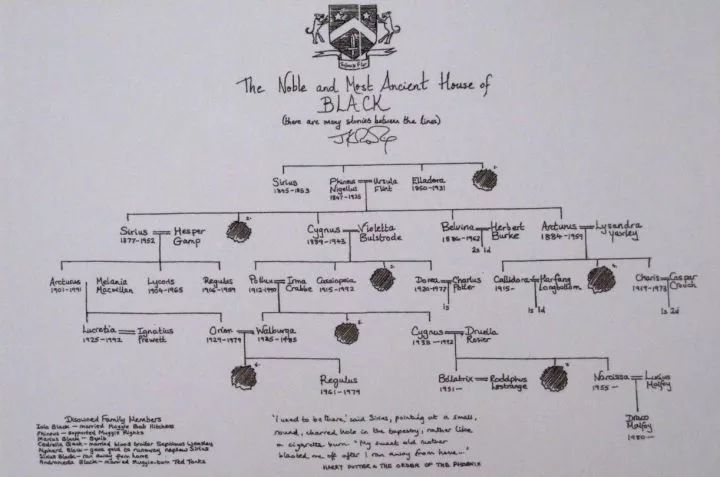 The Noble and Most Ancient House of
BLACK
(there are many stories between the lines)
Sirius
1845-1853
Phineas Nigellus
1847-1925
Ursula Flint
Elladora
1850-1931
1.
Sirius
1877-1952
Hesper Gamp
2.
Cygnus
1889-1943
Violetta Bulstrode
Belvina
1886-1962
Herbert Burke
2s 1d
Arcturus
1884-1959
Lysandra Yaxley
Arcturus
1901-1991
Melania Macmillan
Lycoris
1904-1965
Regulus
1906-1959
Pollux
1912-1990
Irma Crabbe
Cassiopeia
1915-1992
Dorea
1920-1977
Charlus Potter
1s
Callidora
1915-
Harfang Longbottom
1s 1d
Charis
1919-1973
Caspar Crouch
1s 2d
Lucretia
1925-1992
Ignatius Prewett
Orion
1929-1979
Walburga
1925-1985
Cygnus
1938-1992
Druella Rosier
Regulus
1961-1979
Bellatrix
1951-
Rodolphus Lestrange
Narcissa
1955-
Lucius Malfoy
Draco Malfoy
1980-
Disowned Family Members
Isla Black - married Muggle Bob Hitchens
Phineas - supported Muggle Rights
Marius Black - Squib
Cedrella Black - married blood traitor Septimus Weasley
Alphard Black - gave gold to runaway nephew Sirius
Sirius Black - ran away from home
Andromeda Black - married Muggle-born Ted Tonks
'I used to be there,' said Sirius, pointing at a small,
round, charred hole in the tapestry, rather like
a cigarette burn. "My sweet old mother
blasted me off after I ran away from home..."
HARRY POTTER & THE ORDER OF THE PHOENIX